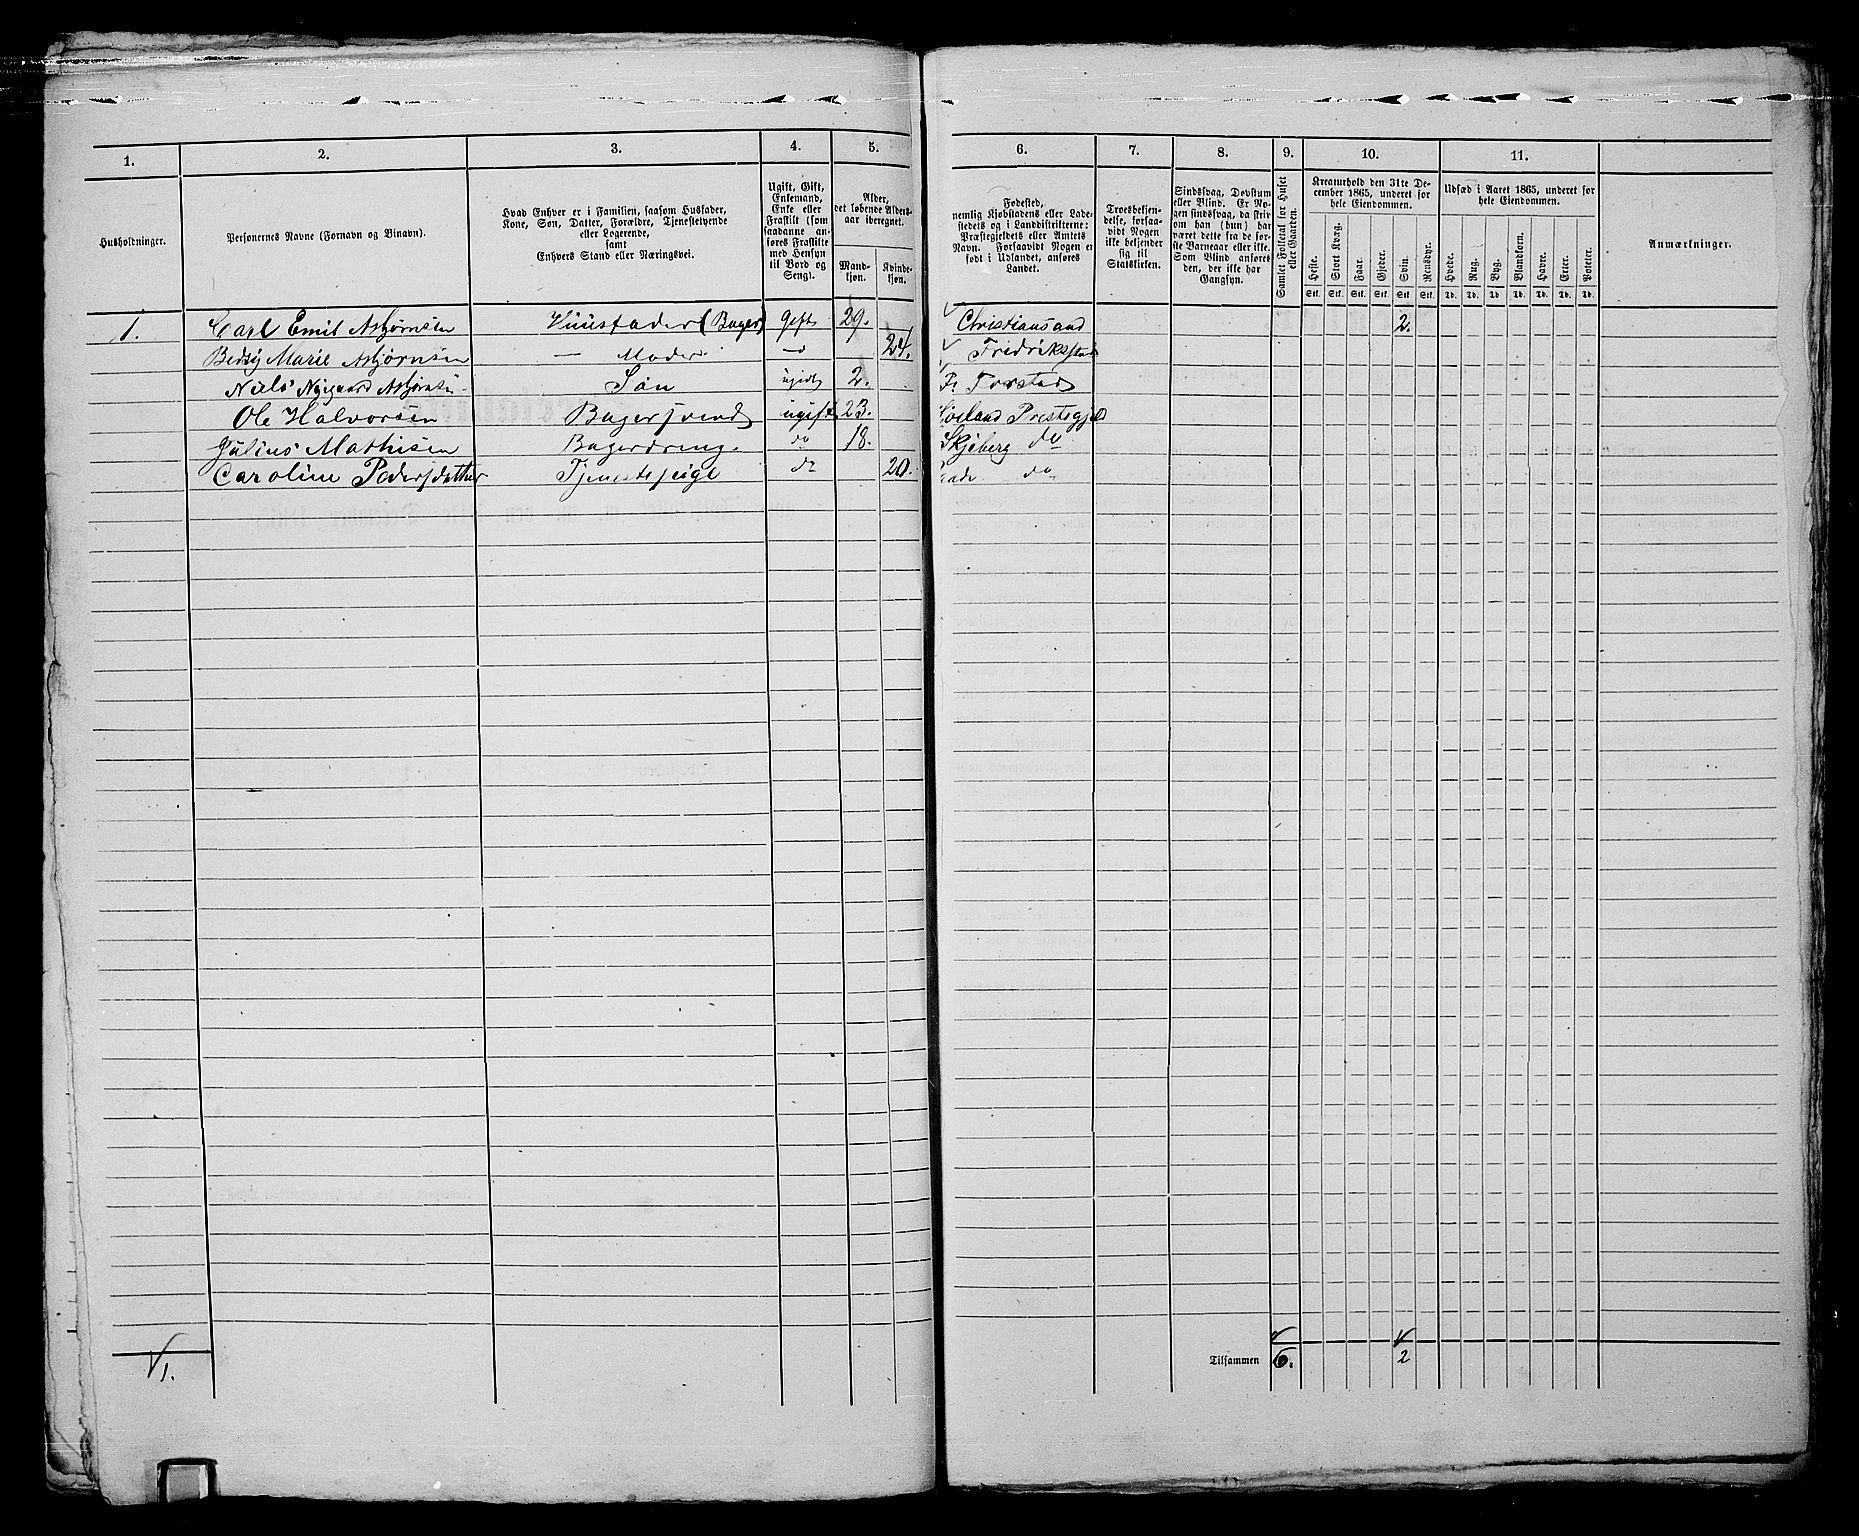 1. 2. 3. 4. 5. 6. 7. 8. 9. 10. 11.
Husholdninger.
Personernes Navne (Fornavn og Binavn).
Hvad Enhver er i Familien, saasom Husfader,
Kone, Søn, Datter, Forældre, Tjenestetyende
eller Logerende,
samt
Enhvers Stand eller Næringsvei.
Ugift, Gift,
Enkemand,
Enke eller
Fraskilt (som
saadanne an-
føres Fraskilte
med Hensyn
til Bord og
Seng).
Alder,
det løbende Alders-
aar iberegnet.
Mand-
kjøn.
Kvinde-
kjøn.
Fødested,
nemlig Kjøbstadens eller Lade-
stedets og i Landdistrikterne:
Præstegjeldets eller Amtets
Navn. Forsaavidt Nogen er
født i Udlandet, anføres
Landet.
Troesbekjen-
delse, forsaa-
vidt Nogen
ikke bekjender
sig til
Statskirken.
Sindssvag, Døvstum
eller Blind. Er No-
gen sindssvag, da skriv
om han (hun) har
været dette fra de før-
ste Barneaar eller ikke.
Som Blind anføret
den, der ikke har
Gangsyn.
Samlet Folketal for Huset
eller Gaarden.
Kreaturhold den 31te De-
cember 1865, underet for
hele Eiendommen.
Heste. Stort Kvæg. Faar. Gjeder. Svin. Rensdyr.
Stk. Stk. Stk. Stk. Stk. Stk.
Udsæd i Aaret 1865, underet for
hele Eiendommen.
Hvede. Rug. Byg. Blandkorn. Havre. Erter. Poteter.
Td. Td. Td. Td. Td. Td. Td.
Anmærkninger.
1. Carl Emil Asbjørnsen Huusfader (Bager) gift 29. Christiansand 2.
Betsy Marie Asbjørnsen — Moder — 24. Fredrikstad
Niels Nygaard Asbjørnsen Søn ugift 2.
Ole Halvorsen Bagersvend ugift 23. Prestegjeld
Julius Mathisen Bagerdreng. do 18. Skjeberg do
Caroline Pedersdatter Tjenestepige do 20. do
1. Tilsammen 6. 2